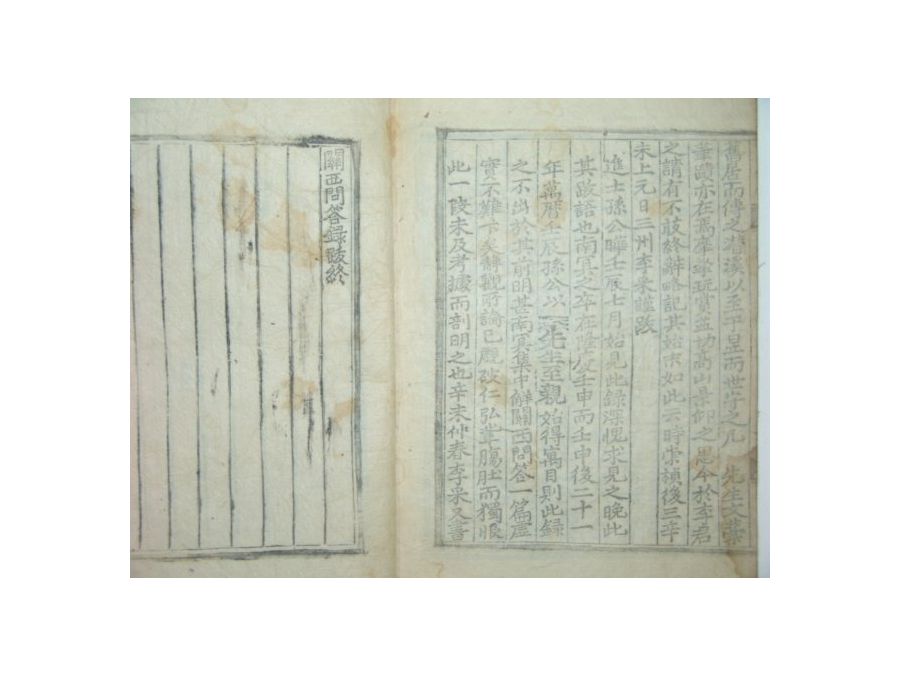 舊居而傳之㵎溪以至于是而世守之凡 先生文蹟
筆蹟亦在焉摩挲玩賞益切高山景仰之思今於李君
之請有不敢終辭略記其始末如此云時崇禎後三辛
未上元日三州李采謹跋
進士孫公曄壬辰七月始見此錄深愧求見之晚此
其跋語也南冥之卒在隆慶壬申而壬申後二十一
年萬曆壬辰孫公以 先生至親始得寓目則此錄
之不出於其前明甚南冥集中解關西問答一篇虛
實不難下矣辭觀所論已覷破仁弘輩膓肚而獨恨
此一段未及考據而剖明之也辛未仲春李采又書
關西問答錄跋終